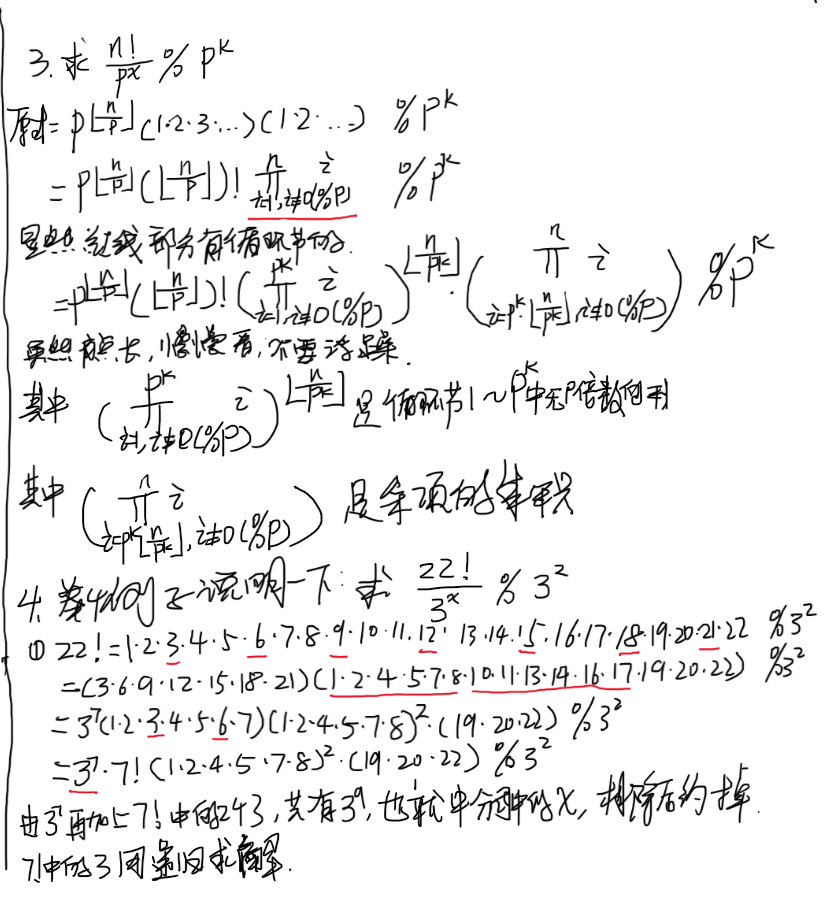 3. 求 n!/p^x % p^k
原式 = p^⌊n/p⌋ (1·2·3·…)(1·2·…) % p^k
= p^⌊n/p⌋ (⌊n/p⌋)! ∏_{i=1, i≢0(%p)}^{n} i % p^k
显然红线部分有循环节的.
= p^⌊n/p⌋ (⌊n/p⌋)! (∏_{i=1, i≢0(%p)}^{p^k} i)^⌊n/p^k⌋ · (∏_{i=p^k·⌊n/p^k⌋, i≢0(%p)}^{n} i) % p^k
虽然有点长, 慢慢看, 不要浮躁.
其中 (∏_{i=1, i≢0(%p)}^{p^k} i)^⌊n/p^k⌋ 是循环节1~p^k中无p倍数的
其中 (∏_{i=p^k⌊n/p^k⌋, i≢0(%p)}^{n} i) 是余项的乘积
4. 举个例子说明一下: 求 22!/3^x % 3^2
① 22! = 1·2·3·4·5·6·7·8·9·10·11·12·13·14·15·16·17·18·19·20·21·22 % 3^2
= (3·6·9·12·15·18·21)(1·2·4·5·7·8·10·11·13·14·16·17·19·20·22) % 3^2
= 3^7(1·2·3·4·5·6·7)(1·2·4·5·7·8)^2·(19·20·22) % 3^2
= 3^7·7!(1·2·4·5·7·8)^2·(19·20·22) % 3^2
由3^7再加上7!中的2个3, 共有3^9, 也就是分母中的x, 相除后约掉.
7!中的3同递归求解.